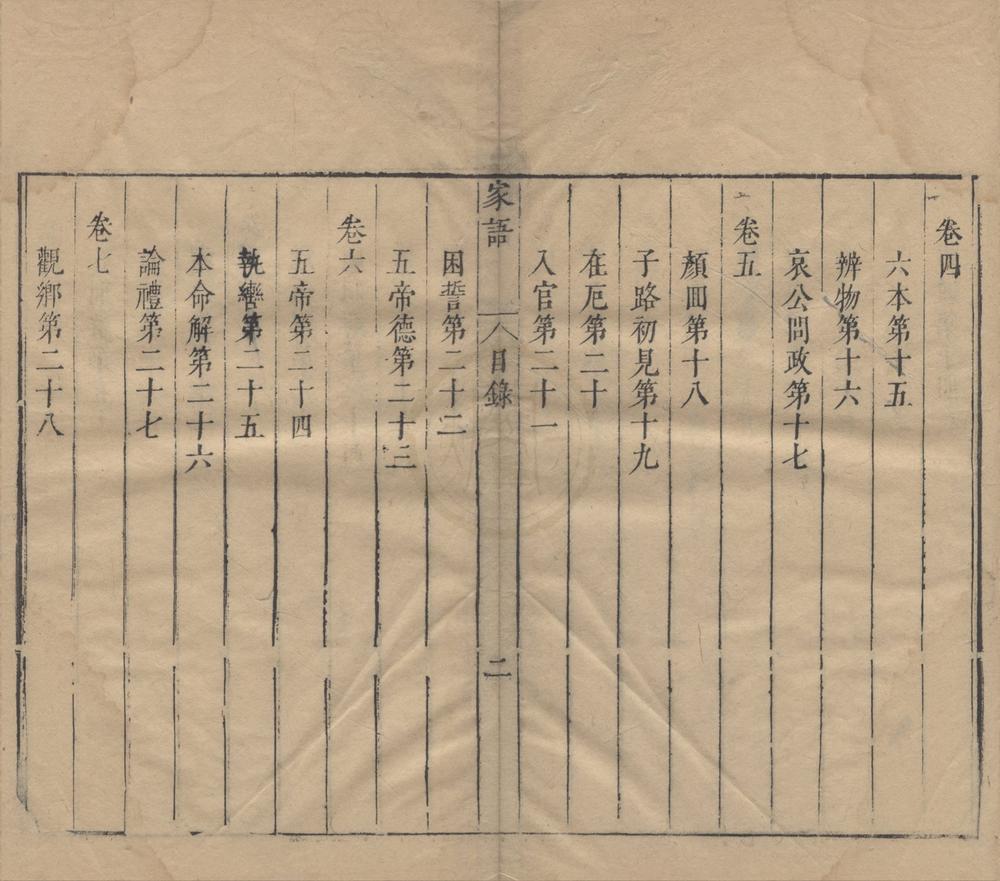 卷四
六本第十五
辨物第十六
哀公問政第十七
卷五
顏囬第十八
子路初見第十九
在厄第二十
入官第二十一
家語 目錄 二
困誓第二十二
五帝德第二十三
卷六
五帝第二十四
執轡第二十五
本命解第二十六
論禮第二十七
卷七
觀鄉第二十八